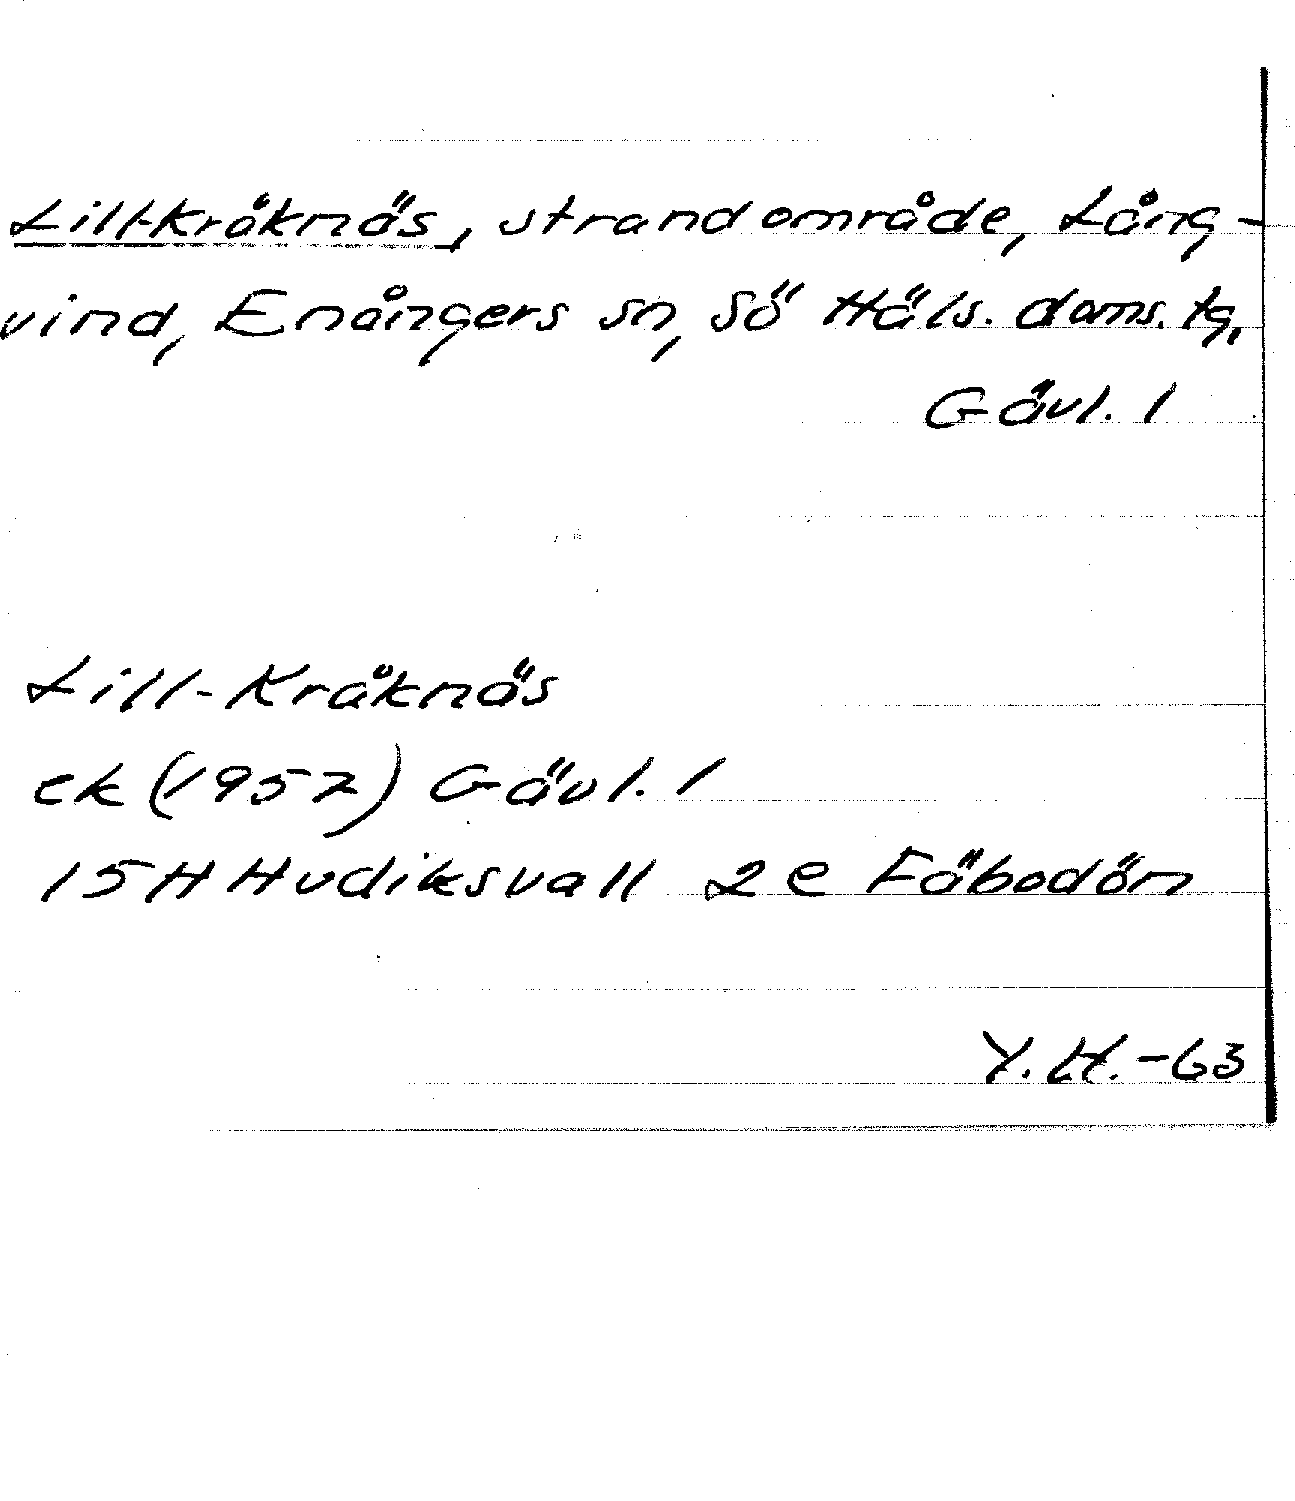 Lill-Kråknäs, strandområde, Lång-
vind, Enångers sn, Sö Häls. doms. tg.
Gävl. l
Lill-Kråknäs
ek (1957) Gävl. l
15H Hudiksvall 2e Fäbodön
Y.H.-63